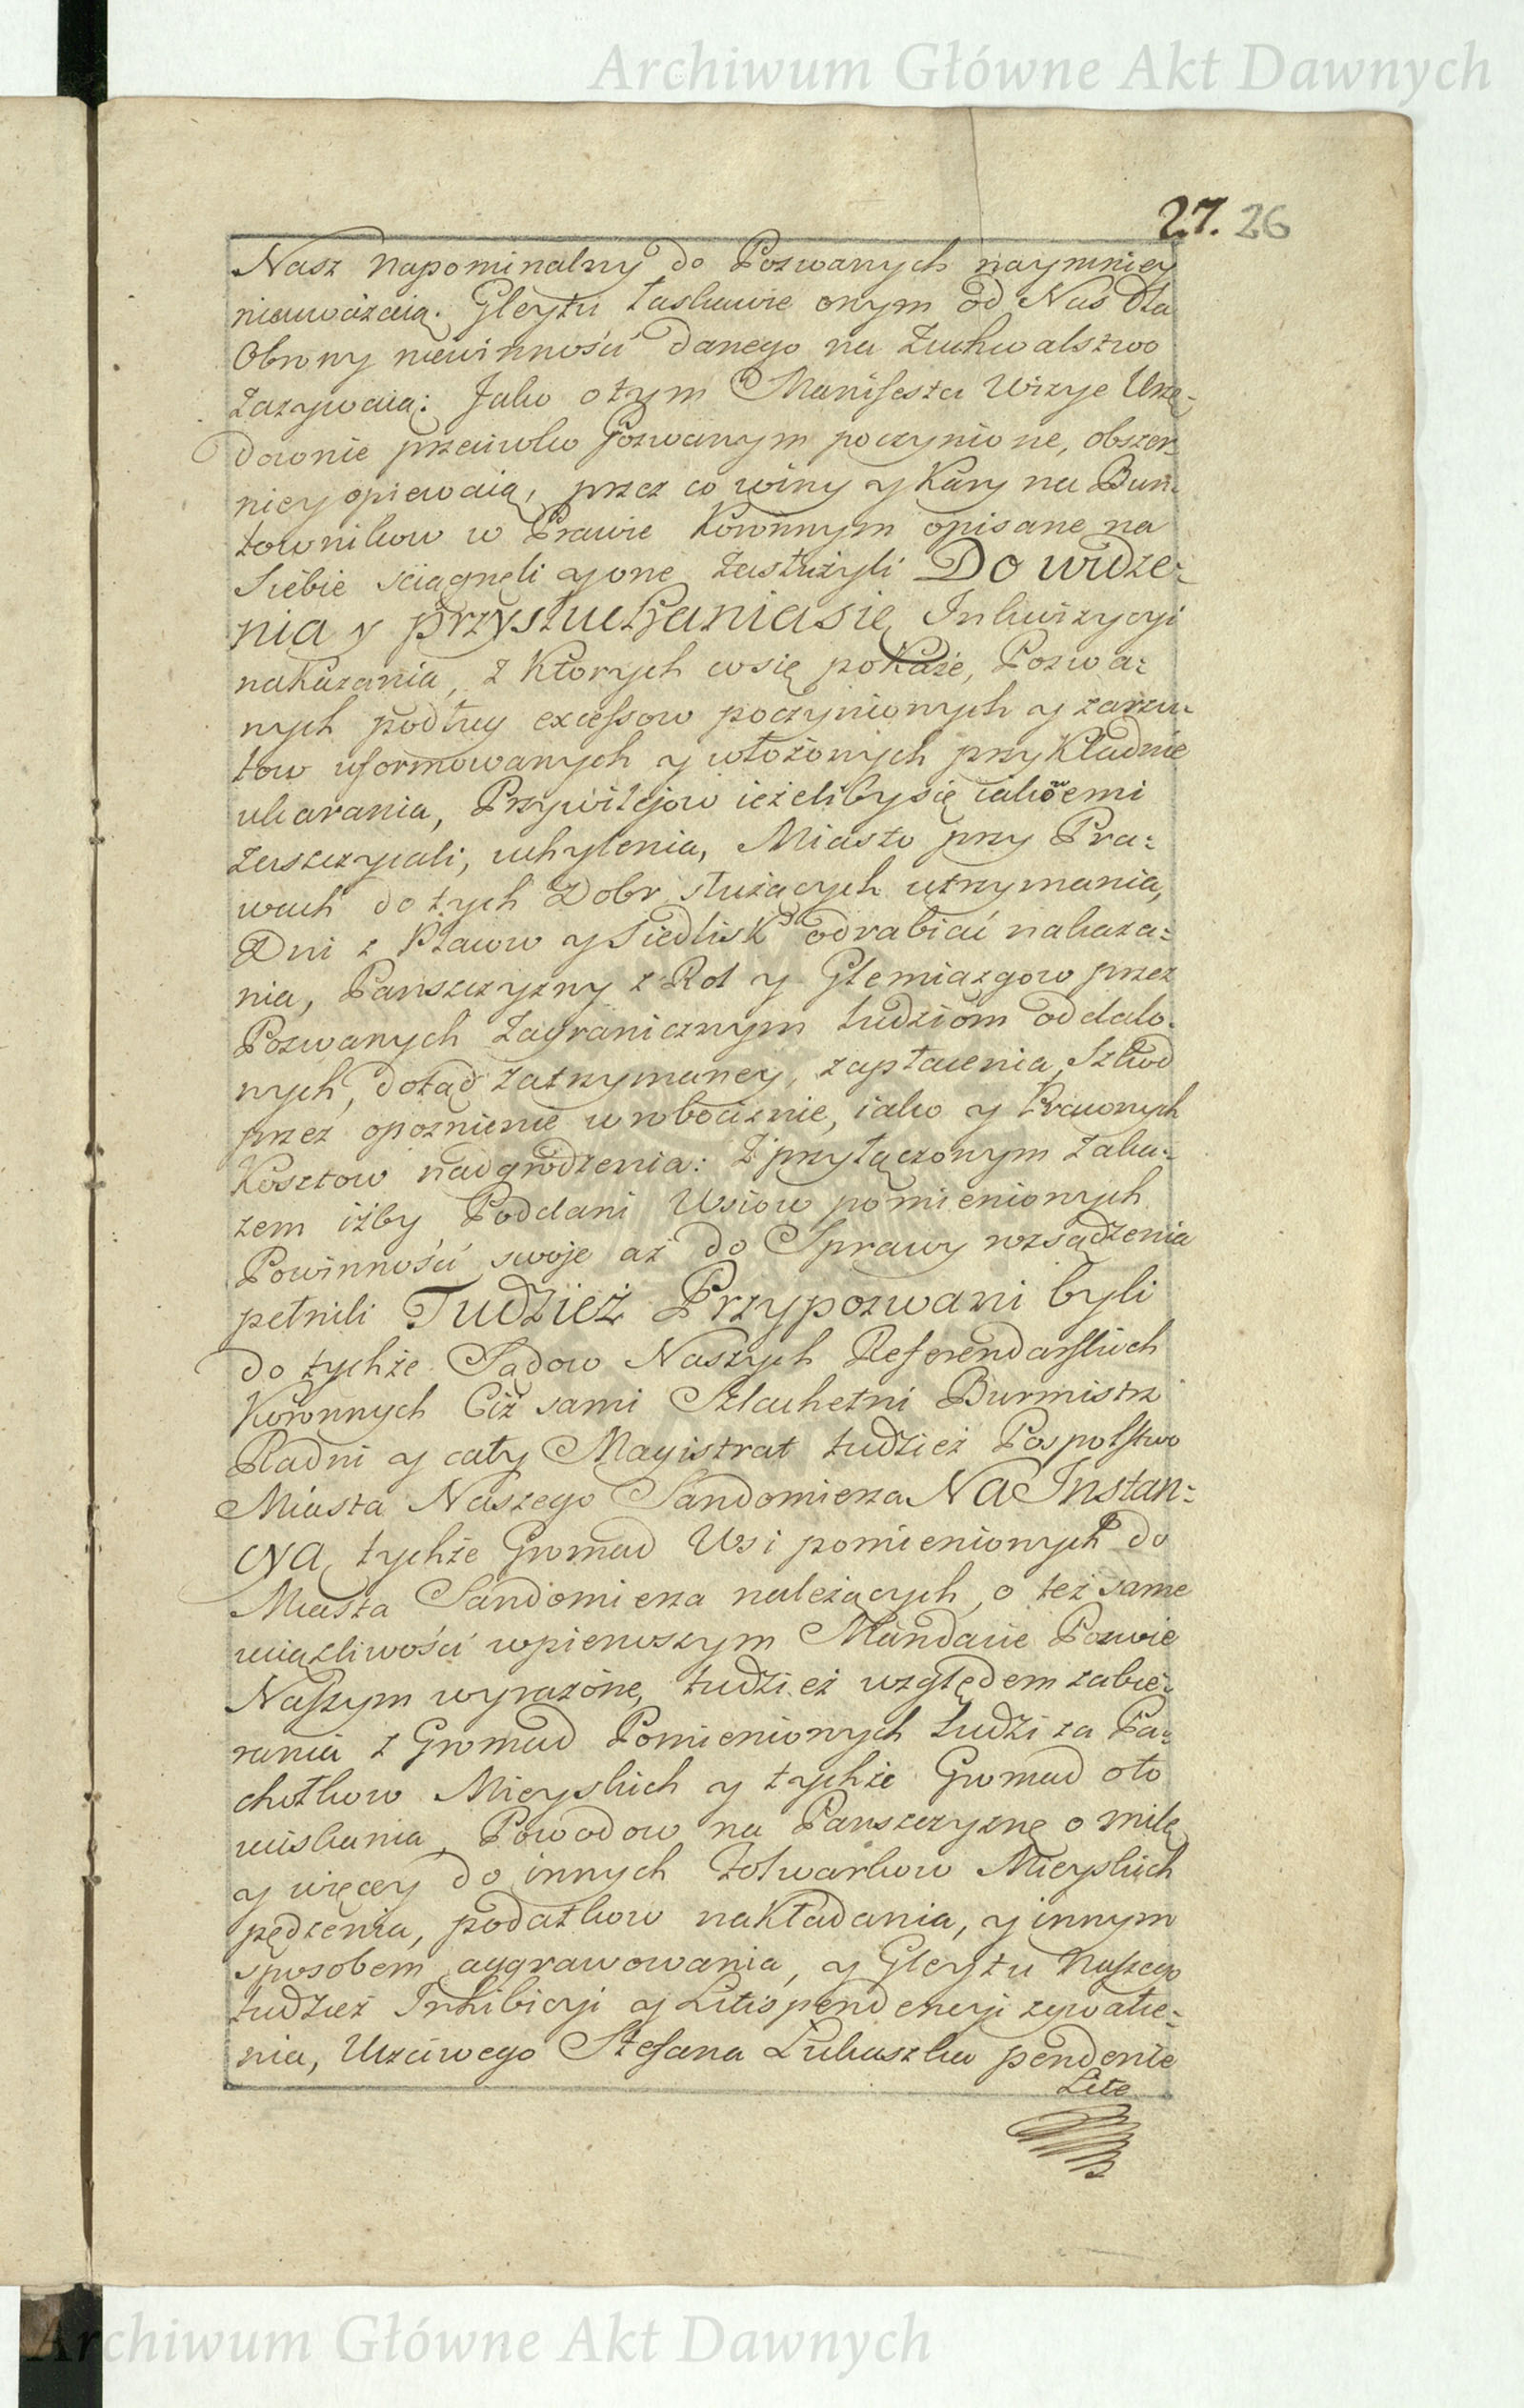 Archiwum Główne Akt Dawnych
27. 26
Nasz napominalny do Pozwanych naymniey
nieuważaią. Gleytu łaskawie onym od Nas dla
Obrony niewinności danego na Zuchwalstwo
Zazywaią: Jako otym Manifesta Wizye Urzę-
downie przeciwko Pozwanym poczynione, obszer-
niey opiewaią, przez co winy y Kary na Bun-
townikow w Prawie Koronnym opisane na
Siebie sciągneli y one zasłużyli Do widze-
nia y przysłuchania się Inkwizycyi
nakazania, z Ktorych co się pokaże, Pozwa-
nych podług excessow poczynionych y zarzu-
tow uformowanych y włożonych przykładnie
ukarania, Przywilejow ieżeliby się iakowemi
zaszczycali, uchylenia, Miasto przy Pra-
wach do tych Dobr służących utrzymania,
Dni z Pławow y Siedlisk odrabiać nakaza-
nia, Panszczyzny z Rol y Glemiazgow przez
Pozwanych Zagranicznym ludziom oddalo-
nych, dotąd zatrzymaney, zapłacenia, Szkod
przez opoznienie w robociznie, iako y Prawnych
Kosztow nadgrodzenia: Z przyłączonym zaka-
zem iżby Poddani Wsiow pomienionych
Powinności swoje aż do Sprawy rozsądzenia
pełnili Tudzież Przypozwani byli
do tychże Sądow Naszych Referendarskich
Koronnych Ciż sami Szlachetni Burmistrz
Radni y cały Magistrat tudzież Pospolstwo
Miasta Naszego Sandomierza Na Instan-
cyą tychże Gromad Wsi pomienionych do
Miasta Sandomierza należących, o też same
uciążliwości w pierwszym Mandacie Pozwie
Naszym wyrażone, tudzież względem zabie-
rania z Gromad Pomienionych Ludzi za Pa-
chołkow Mieyskich y tychże Gromad oto
uciskania, Powodow na Panszczyznę o milę
y więcey do innych Folwarkow Mieyskich
pędzenia, podatkow nakładania, y innym
sposobem aggrawowania, y Gleytu Naszego
tudzież Inhibicyi y Litispendencyi zgwałce-
nia, Uczciwego Stefana Łukaszka pendente
Lite
Archiwum Główne Akt Dawnych